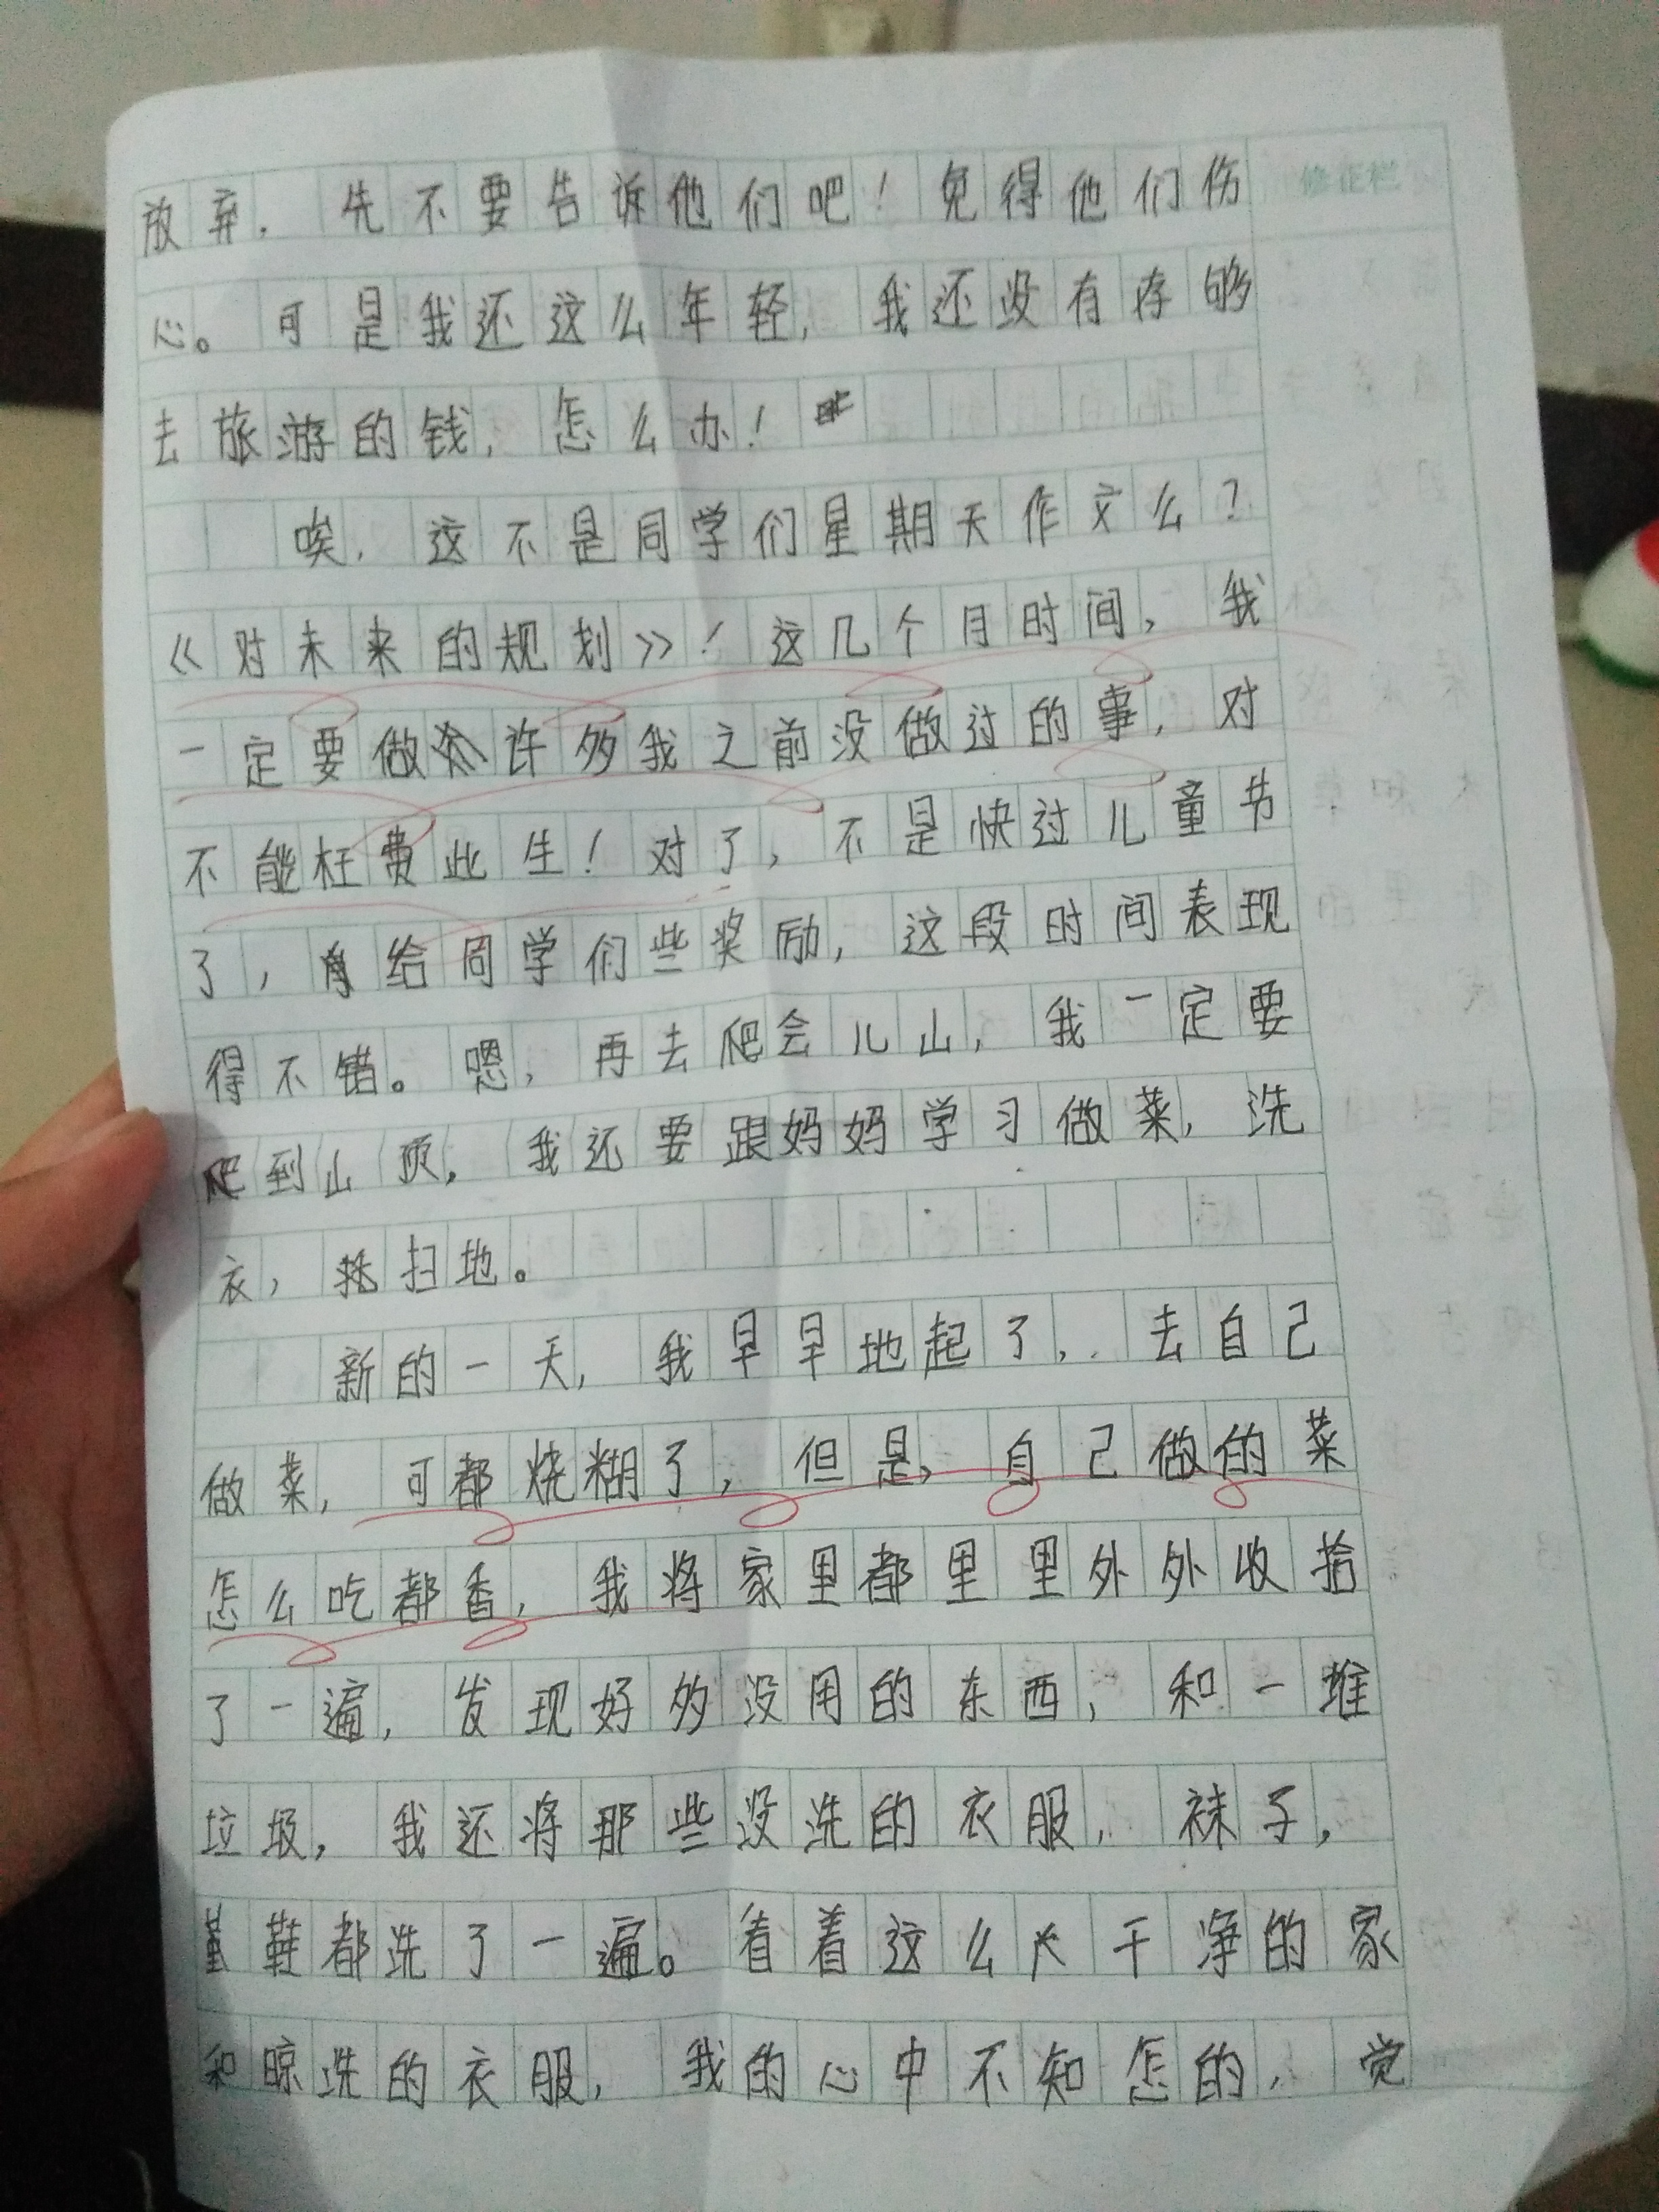 修正栏
放弃，先不要告诉他们吧！免得他们伤
心。可是我还这么年轻，我还没有存够
去旅游的钱，怎么办！
唉，这不是同学们星期天作文么？
《对未来的规划》！这几个月时间，我
一定要做许多我之前没做过的事，对
不能枉费此生！对了，不是快过儿童节
了，给同学们些奖励，这段时间表现
得不错。嗯，再去爬会儿山，我一定要
爬到山顶，我还要跟妈妈学习做菜，洗
衣，扫地。
新的一天，我早早地起了，去自己
做菜，可都烧糊了，但是，自己做的菜
怎么吃都香，我将家里都里里外外收拾
了一遍，发现好多没用的东西，和一堆
垃圾，我还将那些没洗的衣服，袜子，
鞋都洗了一遍。看着这么干净的家
和晾洗的衣服，我的心中不知怎的，觉